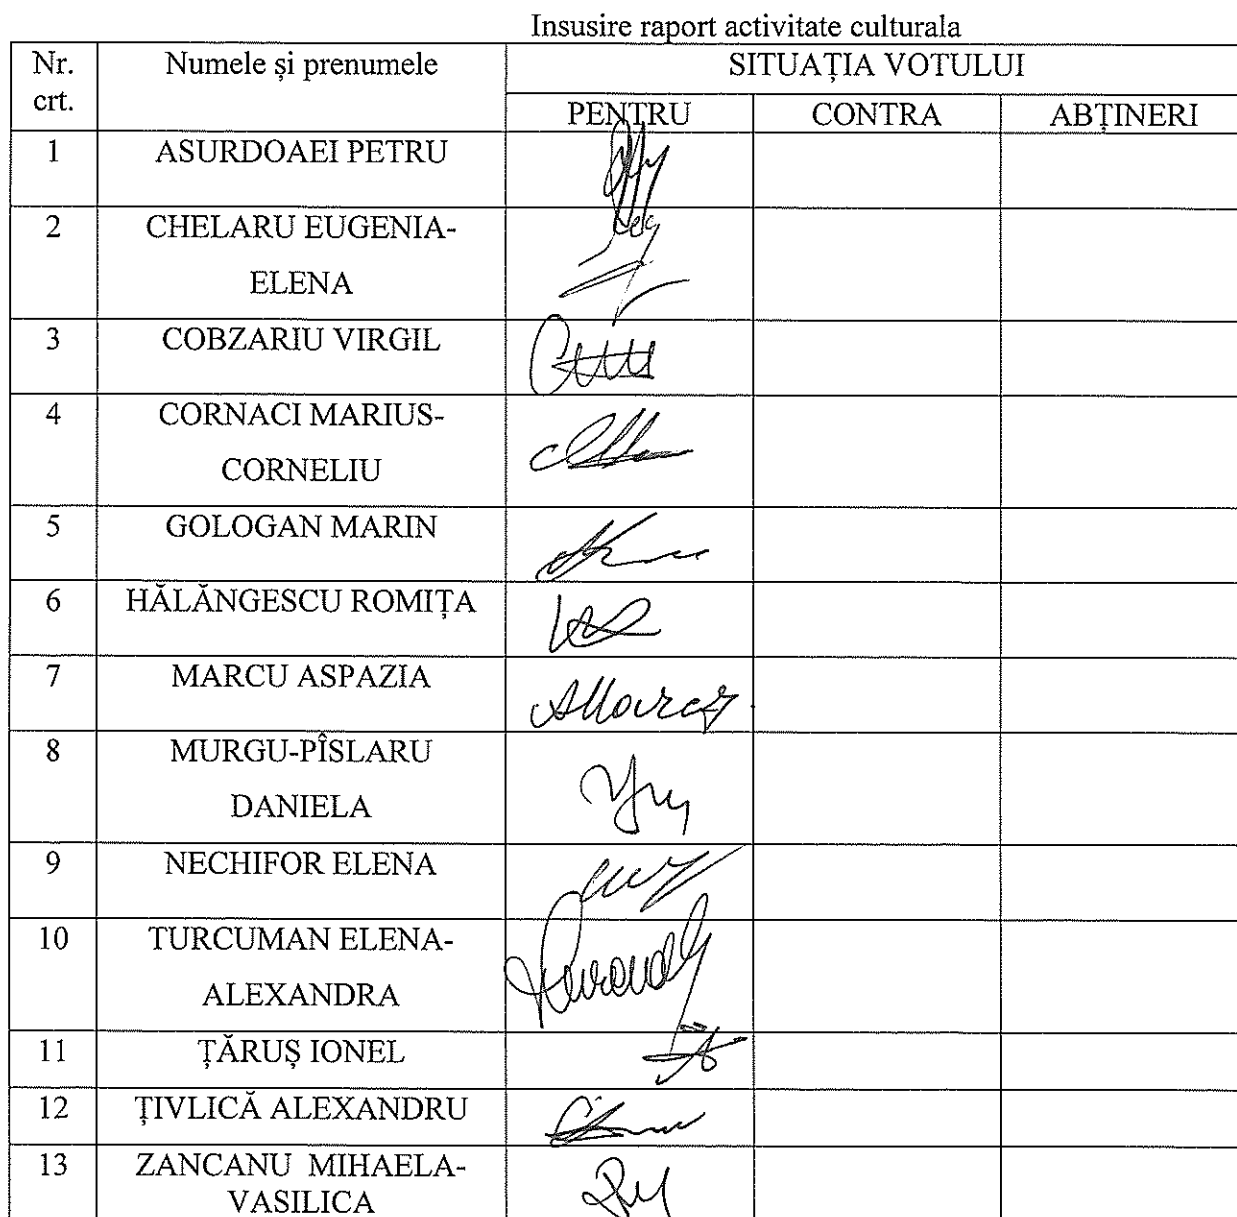 Insusire raport activitate culturala
Nr. crt. Numele și prenumele SITUAȚIA VOTULUI
PENTRU CONTRA ABȚINERI
1 ASURDOAEI PETRU
2 CHELARU EUGENIA-
ELENA
3 COBZARIU VIRGIL
4 CORNACI MARIUS-
CORNELIU
5 GOLOGAN MARIN
6 HĂLĂNGESCU ROMIȚA
7 MARCU ASPAZIA
8 MURGU-PÎSLARU
DANIELA
9 NECHIFOR ELENA
10 TURCUMAN ELENA-
ALEXANDRA
11 ȚĂRUȘ IONEL
12 ȚIVLICĂ ALEXANDRU
13 ZANCANU MIHAELA-
VASILICA